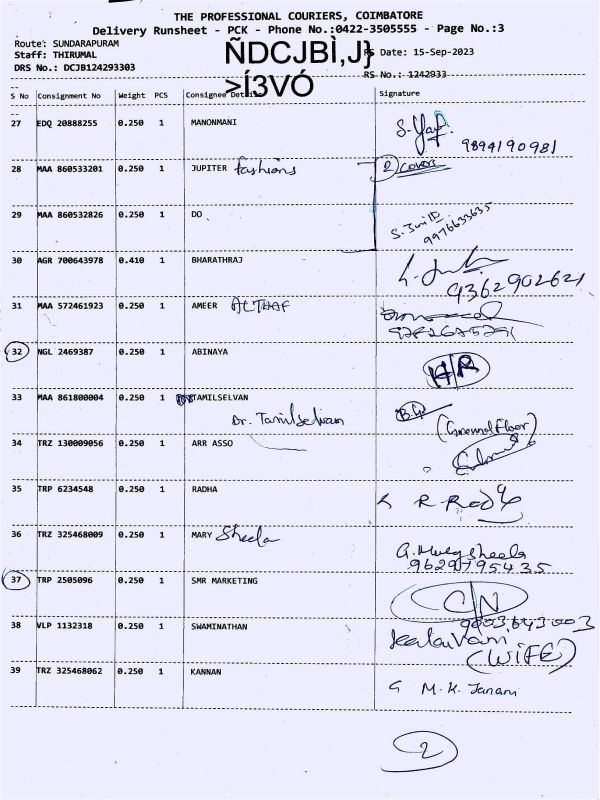 THE PROFESSIONAL COURIERS, COIMBATORE
Delivery Runsheet - PCK - Phone No.:0422-3505555 - Page No.:3
Route: SUNDARAPURAM
Staff: THIRUMAL
DRS No.: DCJB124293303
ÑDCJBÌ,J}
>Í3VÓ
RS Date: 15-Sep-2023
RS No.: 1242933
S No Consignment No Weight PCS Consignee Details Signature
27 EDQ 20888255 0.250 1 MANONMANI
9894190981
28 MAA 860533201 0.250 1 JUPITER fashions 2 covers
29 MAA 860532826 0.250 1 DO
9976633635
30 AGR 700643978 0.410 1 BHARATHRAJ
9362902621
31 MAA 572461923 0.250 1 AMEER ALTHAF
32 NGL 2469387 0.250 1 ABINAYA
33 MAA 861800004 0.250 1 TAMILSELVAN
Dr. Tamilselvan (Ground Floor)
34 TRZ 130009056 0.250 1 ARR ASSO
35 TRP 6234548 0.250 1 RADHA
36 TRZ 325468009 0.250 1 MARY Sheela
G. Mary Sheela
9629795435
37 TRP 2505096 0.250 1 SMR MARKETING C/N
38 VLP 1132318 0.250 1 SWAMINATHAN
Kalaivani
(WIFE)
39 TRZ 325468062 0.250 1 KANNAN M.K. Janani
2